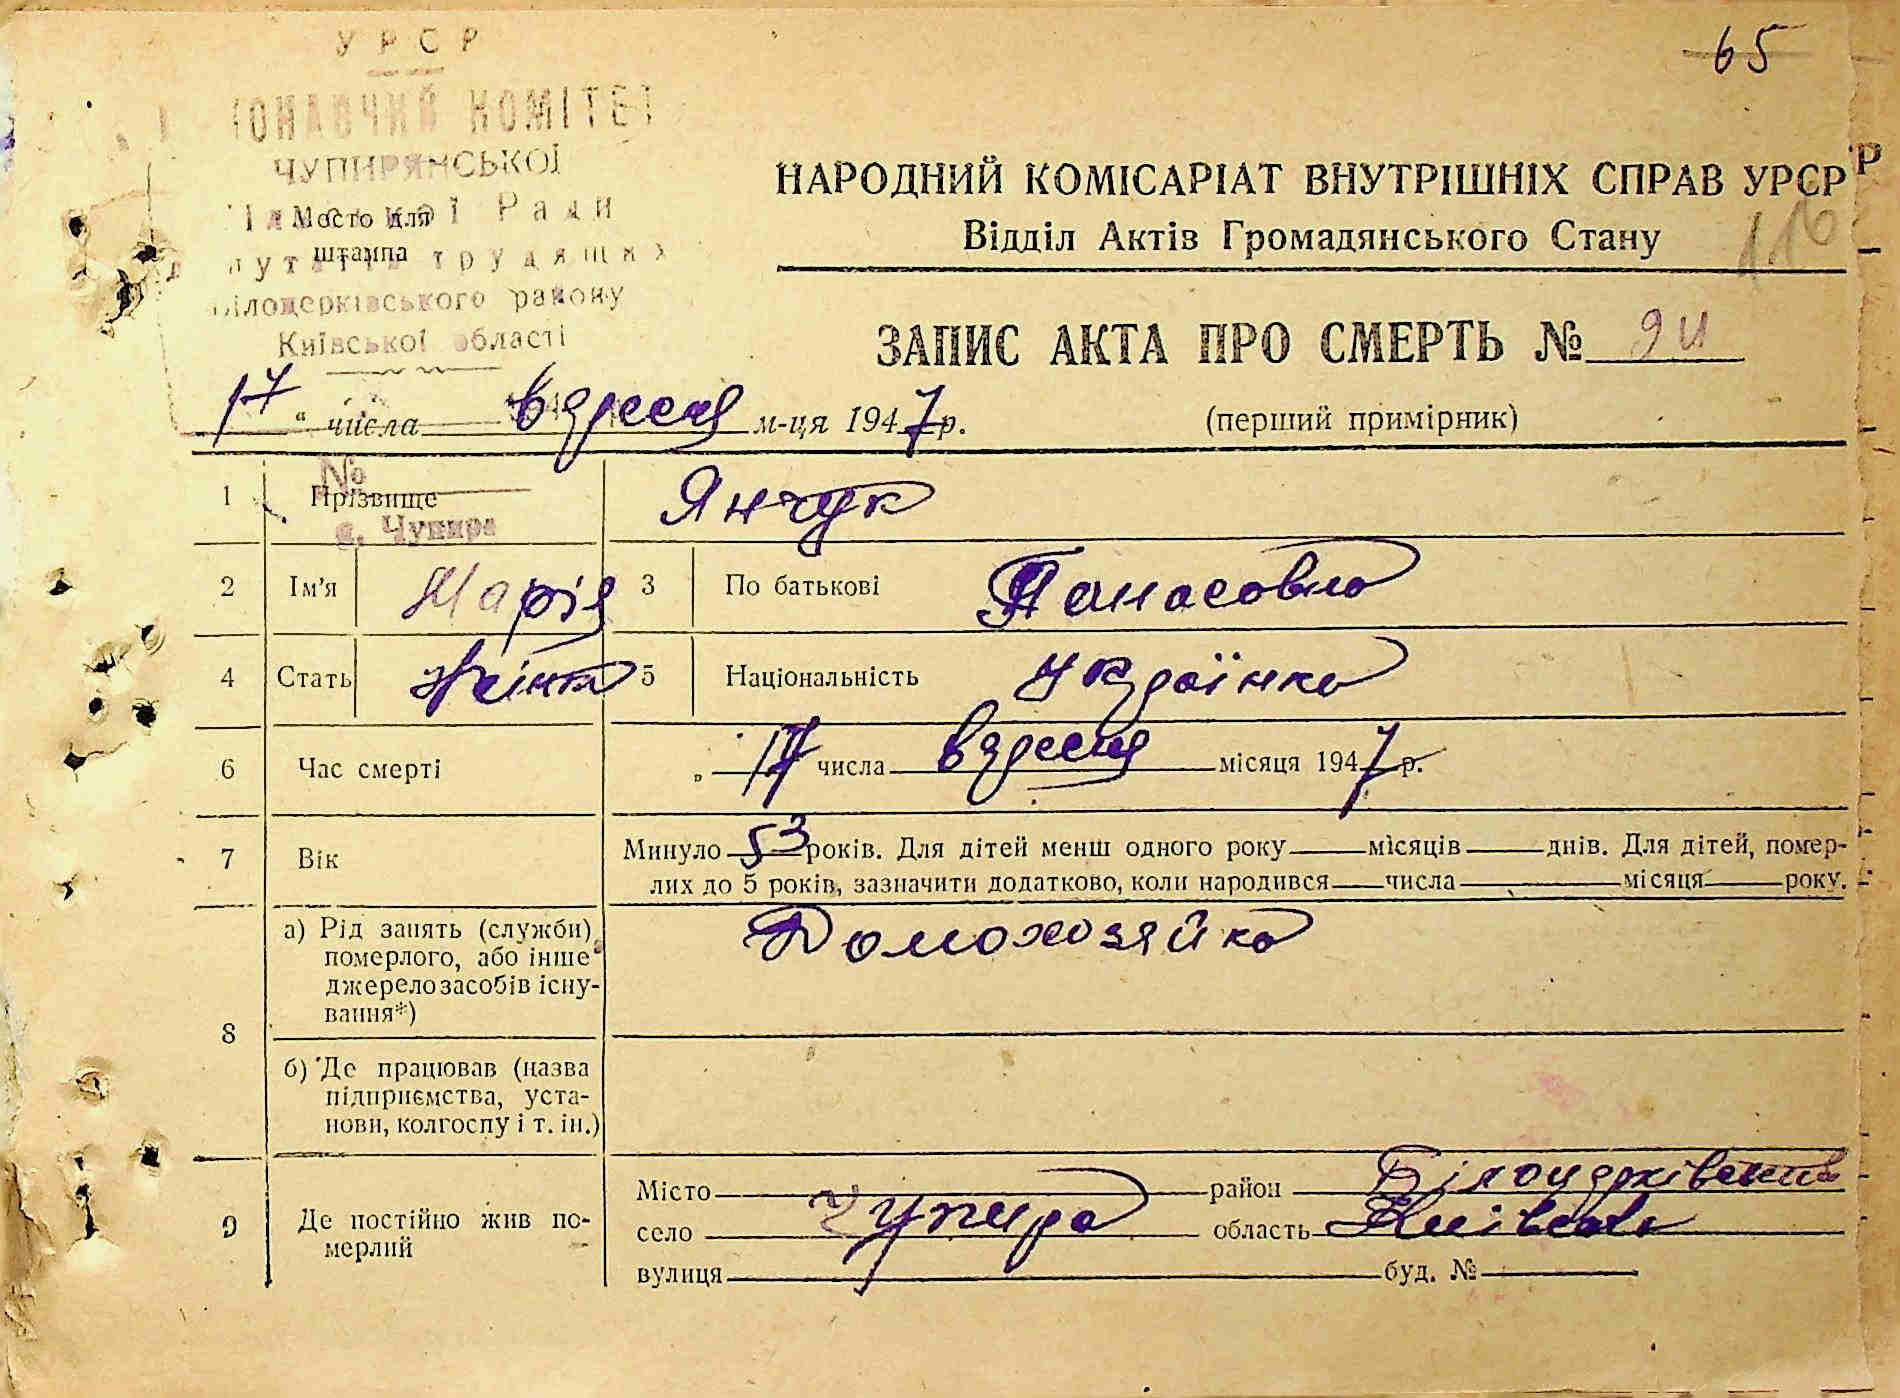 65
УРСР
КОМІТЕТ
ЧУПИРЯНСЬКОЇ
Ради
Место для
штампа
трудящих
Білоцерківського району
Київської області
№
с. Чупира
НАРОДНИЙ КОМІСАРІАТ ВНУТРІШНІХ СПРАВ УРСР
Відділ Актів Громадянського Стану
116
ЗАПИС АКТА ПРО СМЕРТЬ №
17 " числа вересня м-ця 1947 р.
(перший примірник)
1 Прізвище Янчук
2 Ім'я Марія 3 По батькові Панасовна
4 Стать жінт 5 Національність Українка
6 Час смерті „ 17 числа вересня місяця 1947 р.
7 Вік Минуло 53 років. Для дітей менш одного року місяців днів. Для дітей, помер-
лих до 5 років, зазначити додатково, коли народився числа місяця року.
8 а) Рід занять (служби) Домохозяйка
померлого, або інше
джерело засобів існу-
вання*)
б) Де працював (назва
підприємства, уста-
нови, колгоспу і т. ін.)
9 Де постійно жив по-
мерлий
Місто район Білоцерківський
село Чупира область Київська
вулиця буд. №